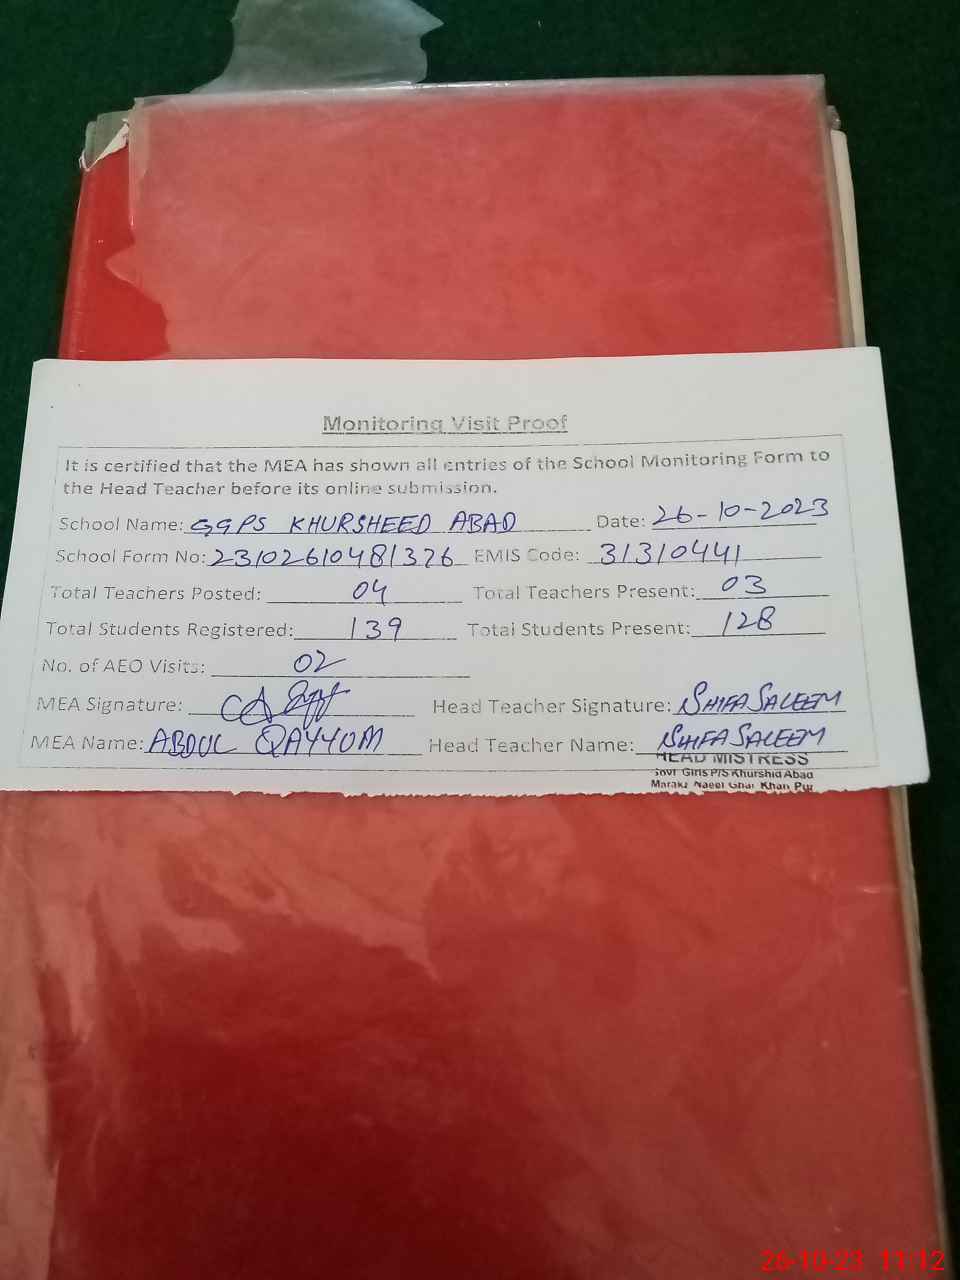 Monitoring Visit Proof
It is certified that the MEA has shown all entries of the School Monitoring Form to
the Head Teacher before its online submission.
School Name: GGPS KHURSHEED ABAD Date: 26-10-2023
School Form No: 23102610481376 EMIS Code: 31310441
Total Teachers Posted: 04 Total Teachers Present: 03
Total Students Registered: 139 Total Students Present: 128
No. of AEO Visits: 02
MEA Signature: Head Teacher Signature: SHIFA SALEEM
MEA Name: ABDUL QAYYUM Head Teacher Name: SHIFA SALEEM
HEAD MISTRESS
Govt Girls P/S Khurshid Abad
Marakz Ghar Khan Pur
26-10-23 11:12